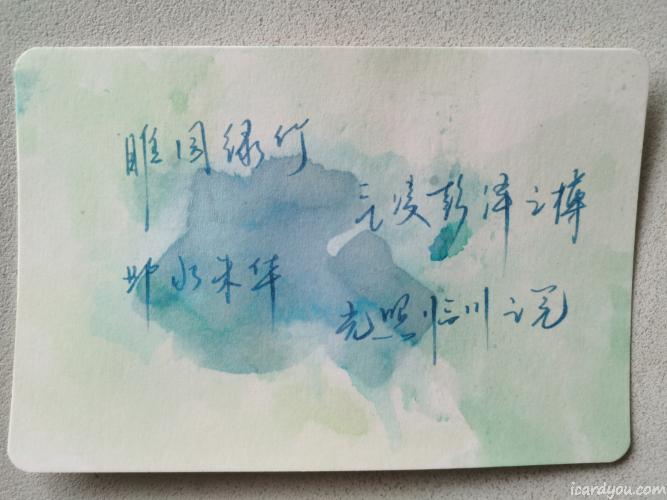 睢园绿竹
气凌彭泽之樽
邺水朱华
光照临川之笔
icardyou.com